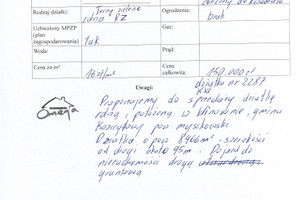 Rodzaj działki: Tereny zielone
rolna RZ
Ogrodzenie: brak
Uchwalony MPZP
(plan
zagospodarowania) Tak
Gaz:
Woda:
Prąd:
Cena za m²
Cena
całkowita: 150.000 zł
Uwagi: działka nr 2287
KW
Omega
Proponujemy do sprzedaży działkę
rolną, położoną w Winownie, gmina
Koziegłowy pow myszkowski
Działka o pow 8966m² i szerokości
od drogi około 95m. Dojazd do
nieruchomości drogą
gruntową